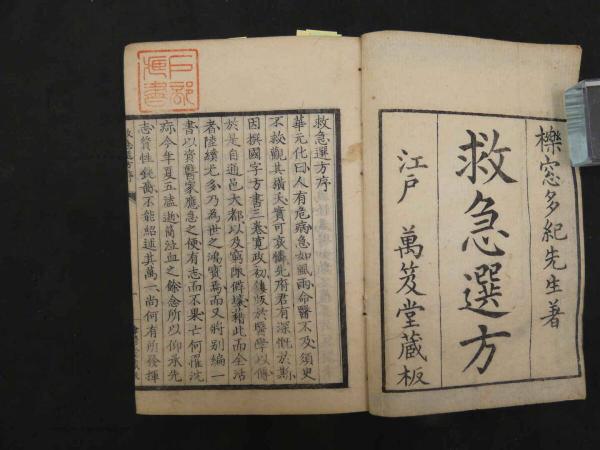 櫟窓多紀先生著
救急選方
江戸 萬笈堂蔵板
救急選方序
華元化曰人有危病急如風雨命醫不及須臾
不救觀其橫夭實可哀憐先府君有深慨於斯
因撰國字方書三卷寬政初鏤版於醫學以傳
於是自通邑大都以及窮陬僻壤藉此而全活
者陸續尤多乃為世之鴻寶焉而又將別編一
書以資醫家應急之便有志而不果亡何罹沈
痾今年夏五溘逝簡泣血之餘念所以仰承先
志質性鈍不能紹述其萬一尚何有所發揮